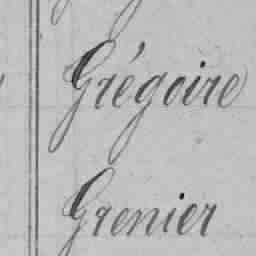 Grégoire
Grenier